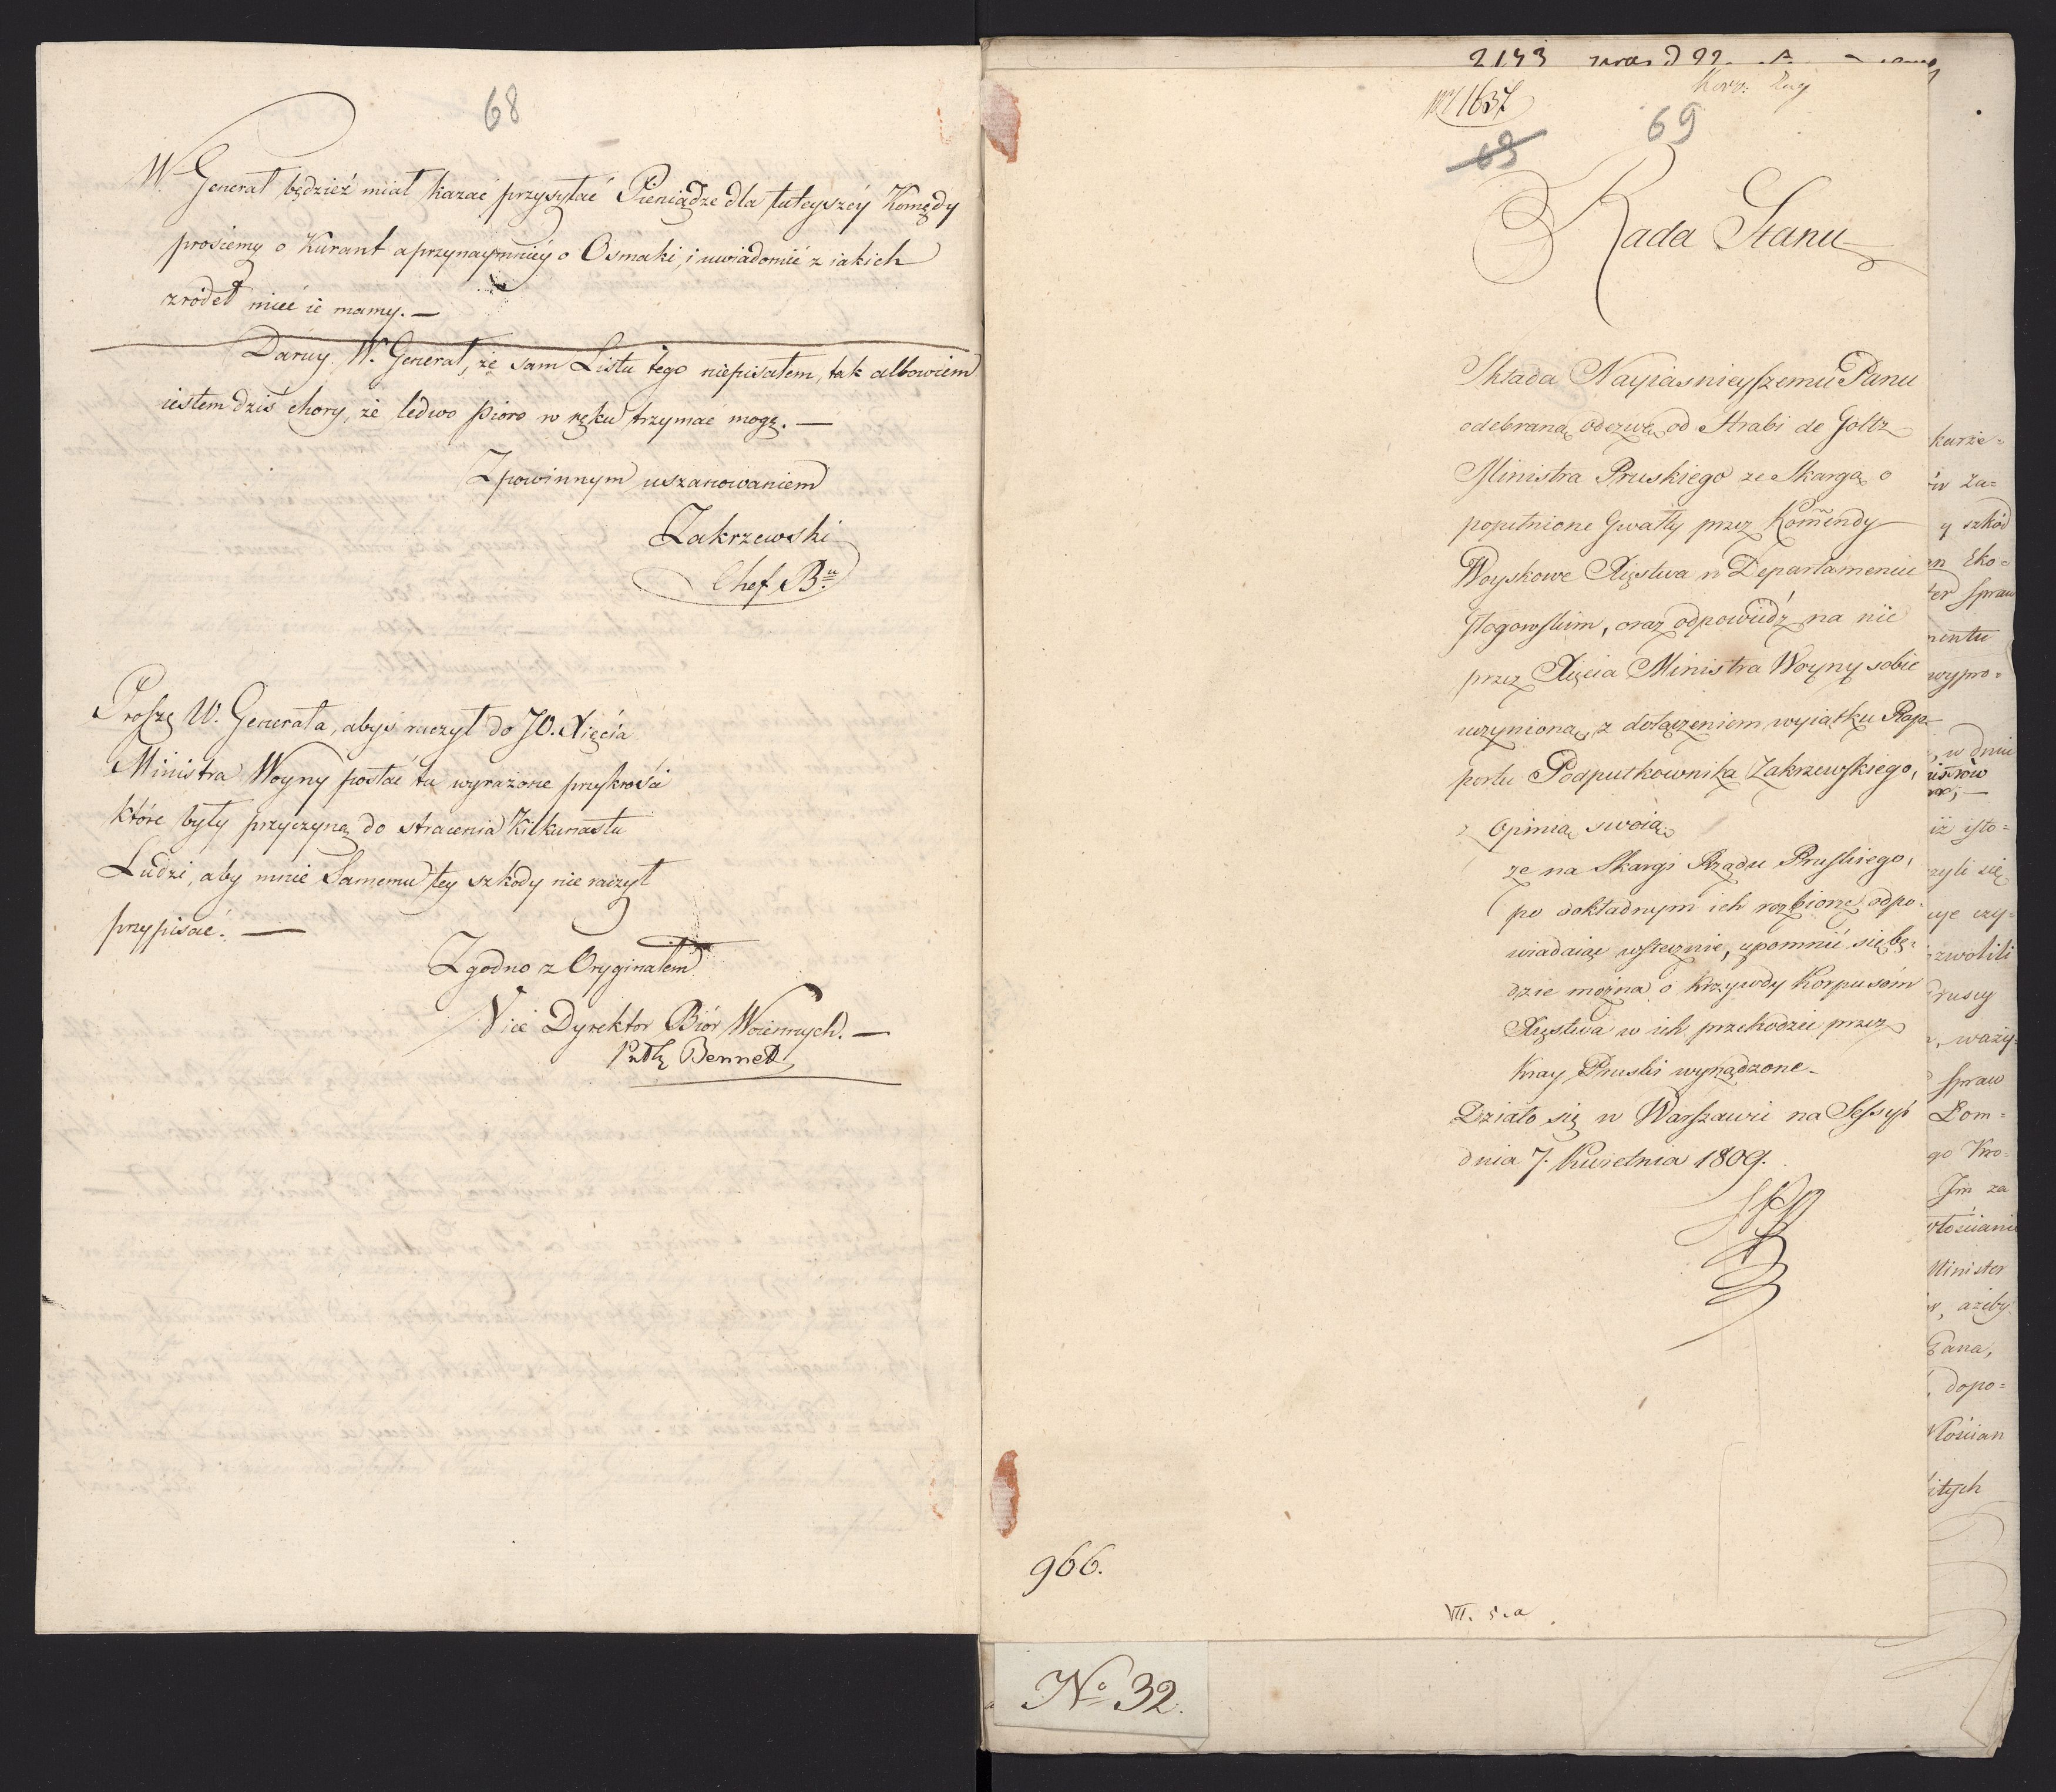 68
W. Generał będzież miał kazać przysyłać Pieniądze dla tuteyszéy Komędy
prosiemy o Kurant a przynaymniéy o Osmaki, i uwiadomić z iakich
zródeł mieć ie mamy. —
Daruy W. Generał, że sam Listu tego niepisałem, tak albowiem
iestem dziś chory, że ledwo pioro w ręku trzymać mogę. —
Z powinnym uszanowaniem
Zakrzewski
Chef B.u
Proszę W. Generała, abyś raczył do JO. Xięcia
Ministra Woyny posłać tu wyrażone przykrości
które były przyczyną do stracenia Kilkunastu
Ludzi, aby mnie Samemu tey szkody nie raczył
przypisać. —
Zgodno z Oryginałem
Vice Dyrektor Biór Woiennych. —
Bennet
2143
1637
69
69
Rada Stanu
Składa Nayiasnieyszemu Panu
odebraną odezwę od Hrabi de Goltz
Ministra Pruskiego ze Skargą o
popełnione Gwałty przez Komendy
Woyskowe Xięstwa w Departamencie
Głogowskim, oraz odpowiedź na nie
przez Xięcia Ministra Woyny sobie
uczynioną, z dołączeniem wyiątku Rap-
portu Podpułkownika Zakrzewskiego,
z Opinią swoią
że na Skargi Rządu Pruskiego,
po dokładnym ich rozbiorze odpo-
wiadaiąc wstecznie, upomnić się bę-
dzie można o krzywdy Korpusóm
Xięstwa w ich przechodzie przez
Kray Pruski wyrządzone.
Działo się w Warszawie na Sessyi
dnia 7. Kwietnia 1809.
kurze=
ów Za=
y szkód
an Eko=
ter Spraw
mentu
wypro=
w dniu
istrów
iż isto=
czyli się
uje czy=
zwolili
Pruscy
waży=
Spraw
Dom=
go Kro=
Jm za
Włościanie
Minister
ażeby
Pana,
dopo=
Włościan
itych
966.
VII. 5.a
No 32.